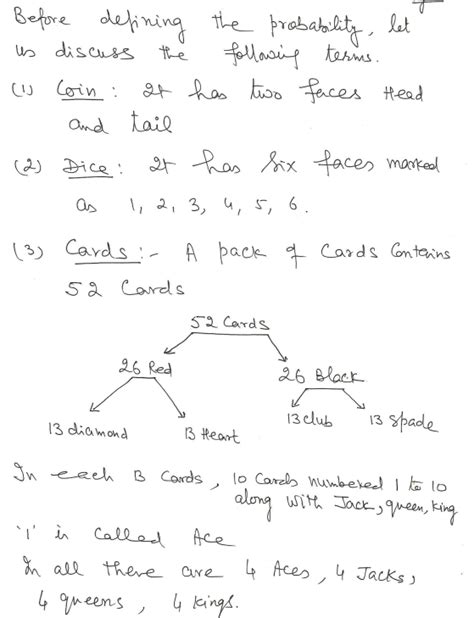 Before defining the probability, let
us discuss the following terms.
(1) Coin : It has two faces Head
and tail
(2) Dice : It has six faces marked
as 1, 2, 3, 4, 5, 6.
(3) Cards :- A pack of Cards Contains
52 Cards
52 Cards
26 Red 26 Black
13 diamond 13 Heart 13 club 13 Spade
In each 13 Cards, 10 Cards numbered 1 to 10
along with Jack, queen, king
'1' is called Ace
In all there are 4 Aces, 4 Jacks,
4 queens, 4 kings.